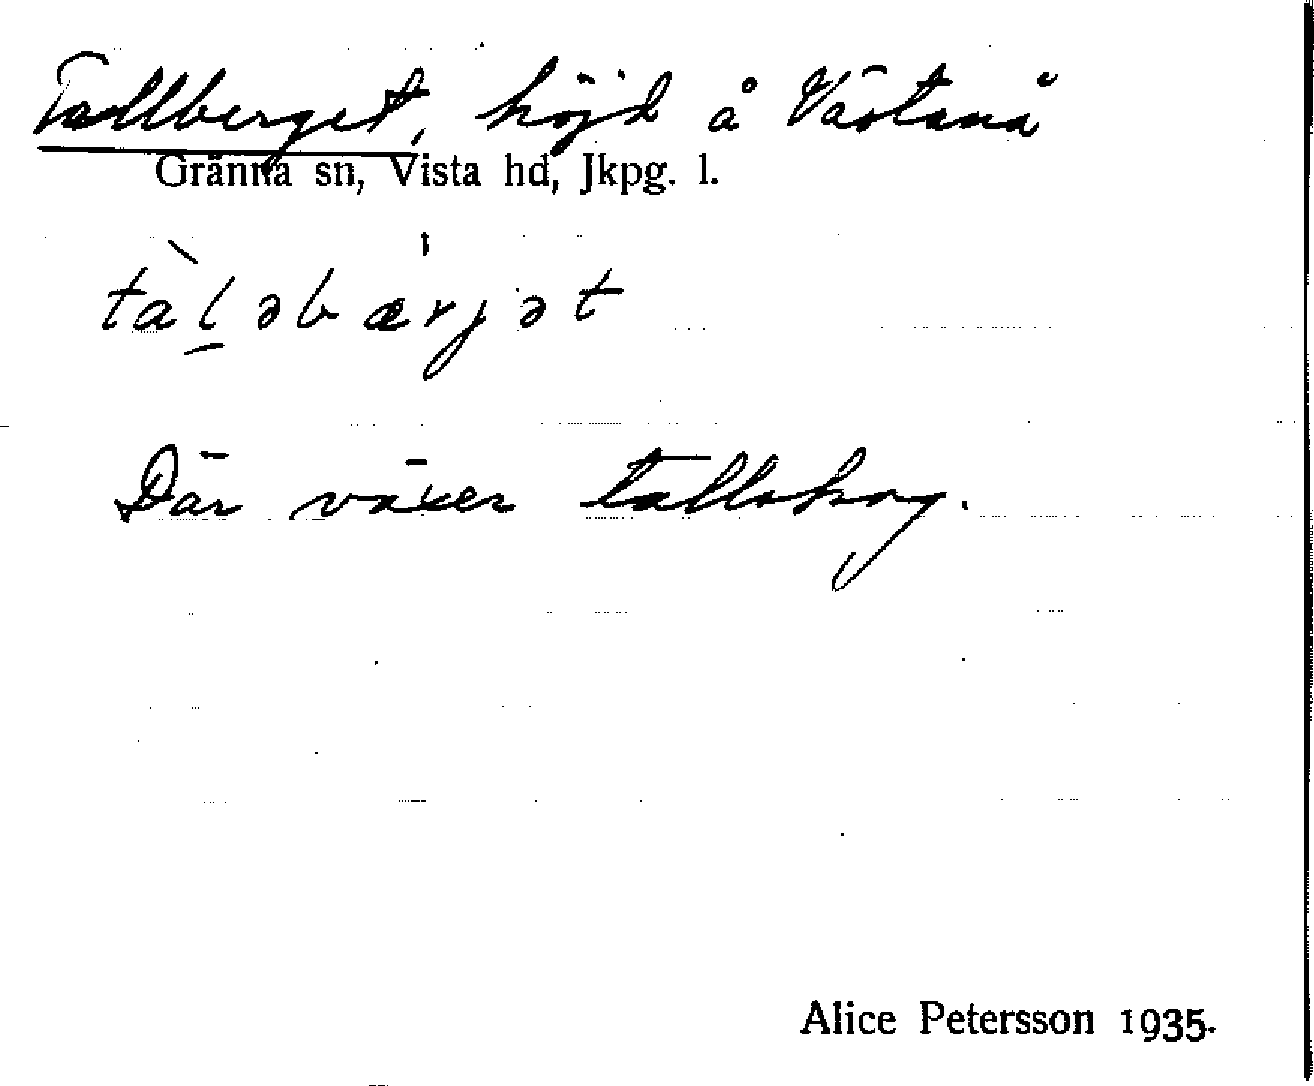 Tallberget, höjd å Västanå
Gränna sn, Vista hd, Jkpg. l.
tàl̠əbærjət
Där växer tallskog.
Alice Petersson 1935.